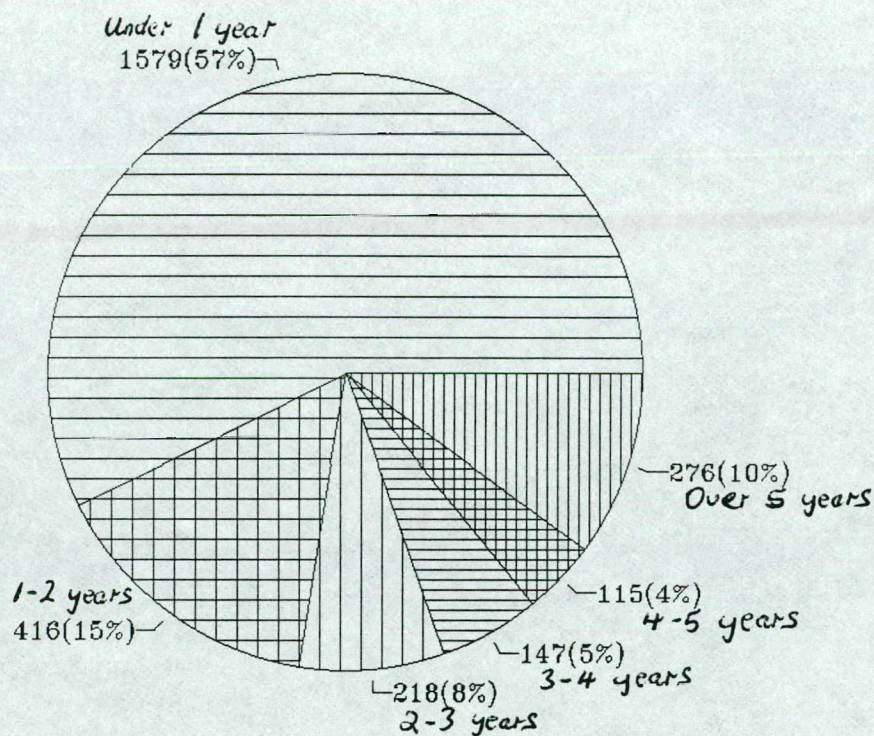 Under 1 year
1579(57%)
276(10%)
Over 5 years
115(4%)
4-5 years
147(5%)
3-4 years
218(8%)
2-3 years
1-2 years
416(15%)